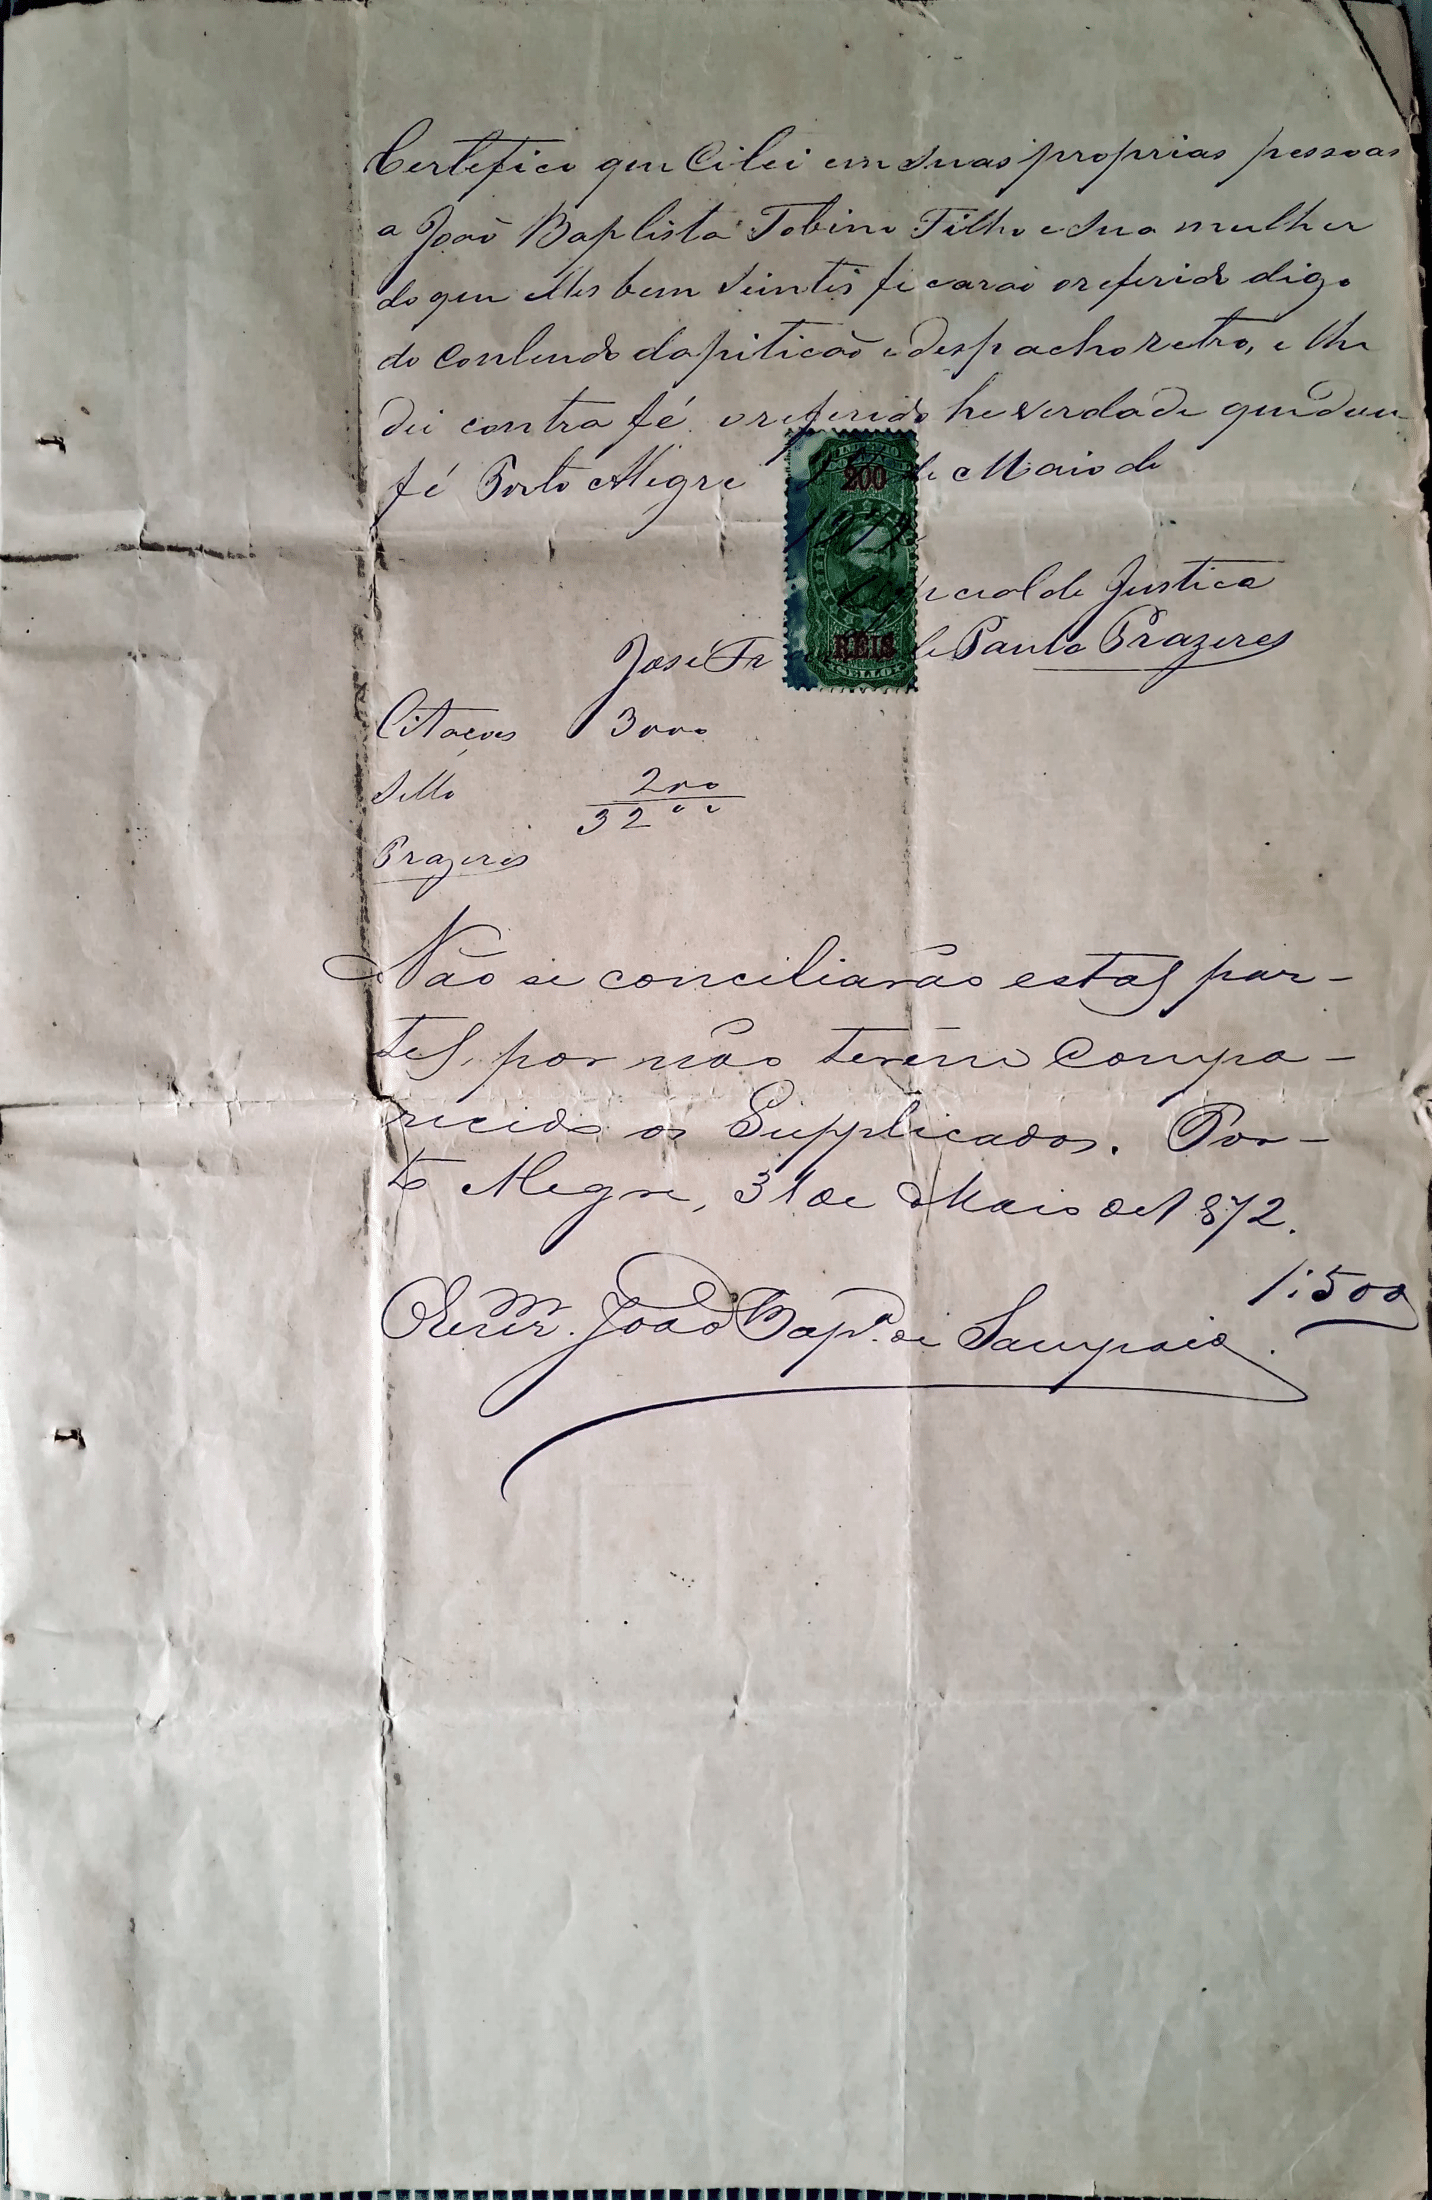 Certefico que Citei em suas proprias pessoas
a João Baptista Tobino Filho e sua mulher
do que elles bem Sientis ficarão o referido digo
do Contendo da pitição e despacho retro, e lhe
dei contra fé o referido he verdade que dou
fé Porto Alegre 2 de Maio de
1872
Official de Justica
José Fr de Paula Prazeres
Citações 3000
Sello 200
3200
Prazeres
Não se conciliarão estas par-
tes, por não terem Compa-
recido os Supplicados. Por-
to Alegre, 31 de Maio de 1872.
1:500
João Bapta. de Sampaio
200
REIS